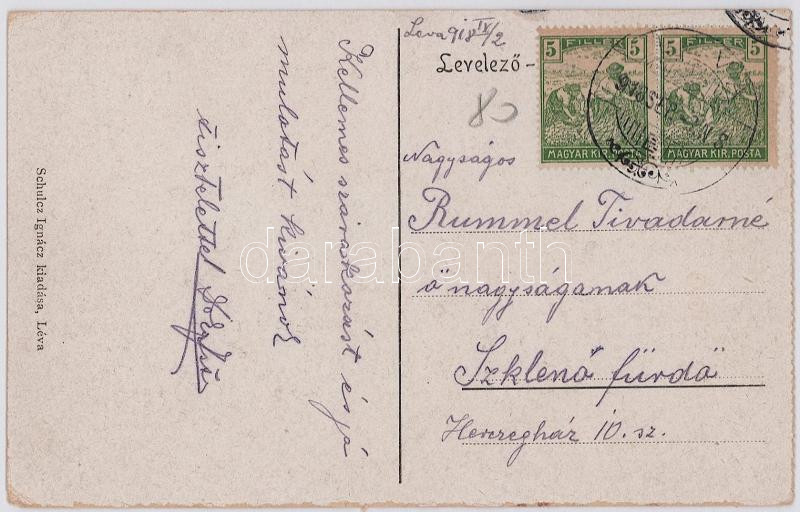 Leva 918 IX/2
Levelező-
80
5 FILLÉR 5
MAGYAR KIR. POSTA
5 FILLÉR 5
MAGYAR KIR. POSTA
Nagyságos
Rummel Tivadarné
ő nagyságának
Szklenó fürdő
Herczegház 10. sz.
Kellemes szórakozást és jó
mulatást kivánok
tisztelettel
Schulcz Ignácz kiadása, Léva
darabanth